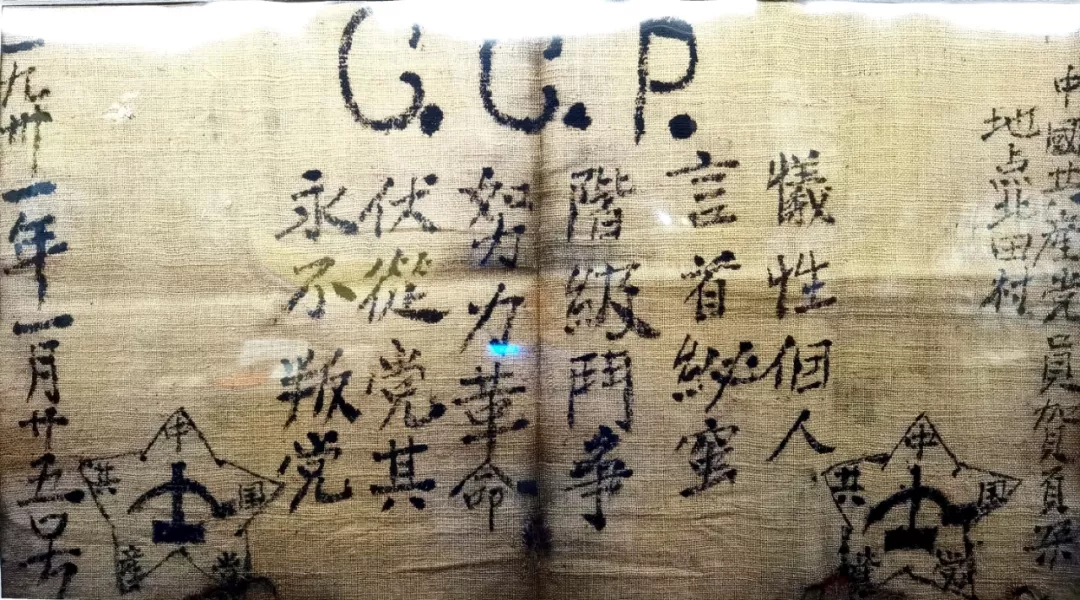 C.C.P.
中國共産党員賀頁朵
地点北田村
犧性個人
言首秘蜜
階級鬥争
努力革命
伏從党其
永不叛党
一九卅一年一月廿五
中国共産党
中国共産党